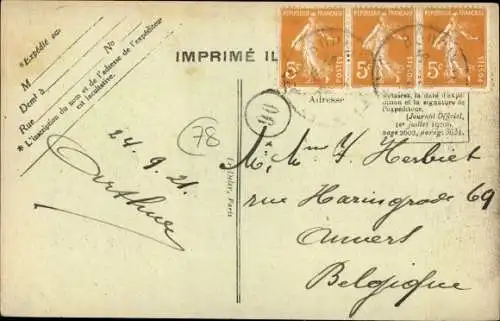 *Expédié par
M
N°
Demt à
Rue
* L'inscription du nom et de l'adresse de l'expéditeur
est facultative.
IMPRIMÉ IL
REPUBLIQUE FRANÇAISE
5c POSTES
REPUBLIQUE FRANÇAISE
5c POSTES
REPUBLIQUE FRANÇAISE
5c POSTES
Adresse
la date d'expé
dition et la signature de
l'expéditeur.
(Journal Officiel,
1er juillet 1920,
page
24.9.21
Arthur
78
Paris
Mme Y Herbiet
rue Haringrode 69
Anvers
Belgique